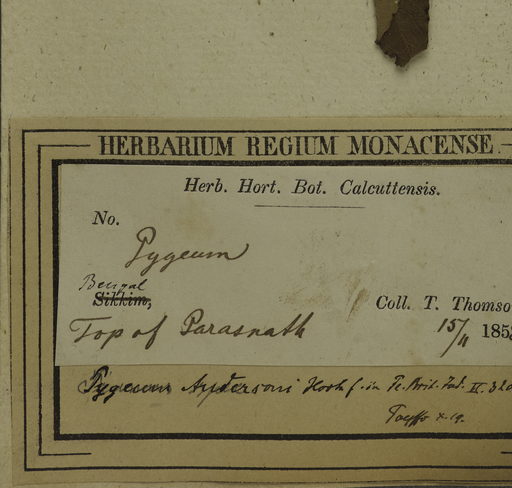 HERBARIUM REGIUM MONACENSE.
Herb. Hort. Bot. Calcuttensis.
No.
Pygeum
Bengal
Sikkim,
Coll. T. Thomso
Top of Parasnath
15/11 185
Pygeum Andersoni Hook f. in Fl. Brit. Ind. II.